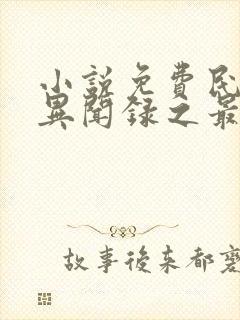 小說免費民
異聞録之最
故事後来都